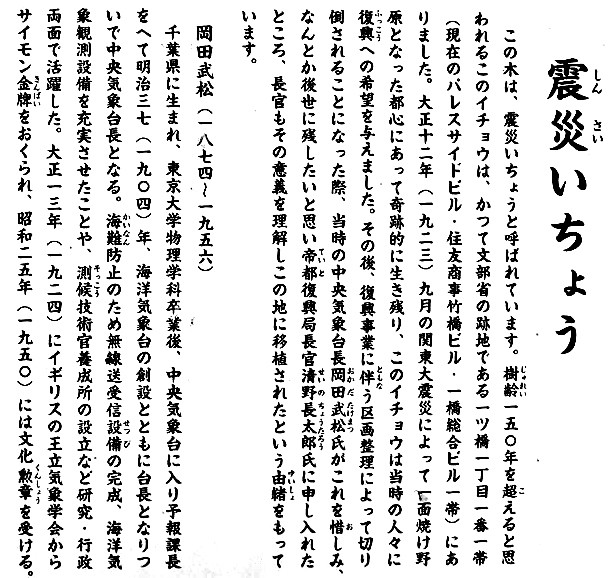 震災いちょう
この木は、震災いちょうと呼ばれています。樹齢一五〇年を超えると思
われるこのイチョウは、かつて文部省の跡地である一ツ橋一丁目一番一帯
（現在のパレスサイドビル・住友商事竹橋ビル・一橋総合ビル一帯）にあ
りました。大正十二年（一九二三）九月の関東大震災によって一面焼け野
原となった都心にあって奇跡的に生き残り、このイチョウは当時の人々に
復興への希望を与えました。その後、復興事業に伴う区画整理によって切り
倒されることになった際、当時の中央気象台長岡田武松氏がこれを惜しみ、
なんとか後世に残したいと思い帝都復興局長官清野長太郎氏に申し入れた
ところ、長官もその意義を理解しこの地に移植されたという由緒をもって
います。
岡田武松（一八七四～一九五六）
千葉県に生まれ、東京大学物理学科卒業後、中央気象台に入り予報課長
をへて明治三七（一九〇四）年、海洋気象台の創設とともに台長となりつ
いで中央気象台長となる。海難防止のため無線送受信設備の完成、海洋気
象観測設備を充実させたことや、測候技術官養成所の設立など研究・行政
両面で活躍した。大正一三年（一九二四）にイギリスの王立気象学会から
サイモン金牌をおくられ、昭和二五年（一九五〇）には文化勲章を受ける。